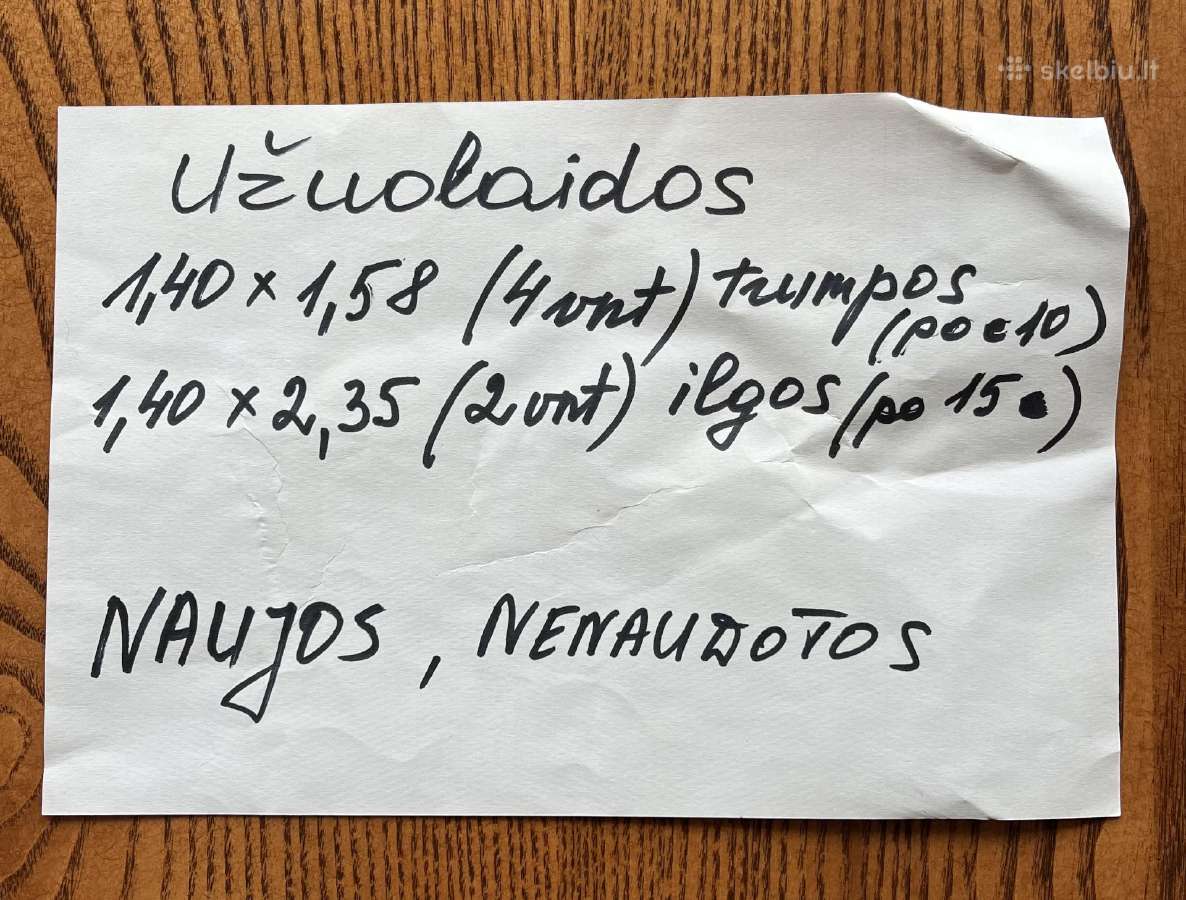 skelbiu.lt
Užuolaidos
1,40 × 1,58 (4 vnt) trumpos
(po e 10)
1,40 × 2,35 (2 vnt) ilgos (po 15 e)
NAUJOS, NENAUDOTOS